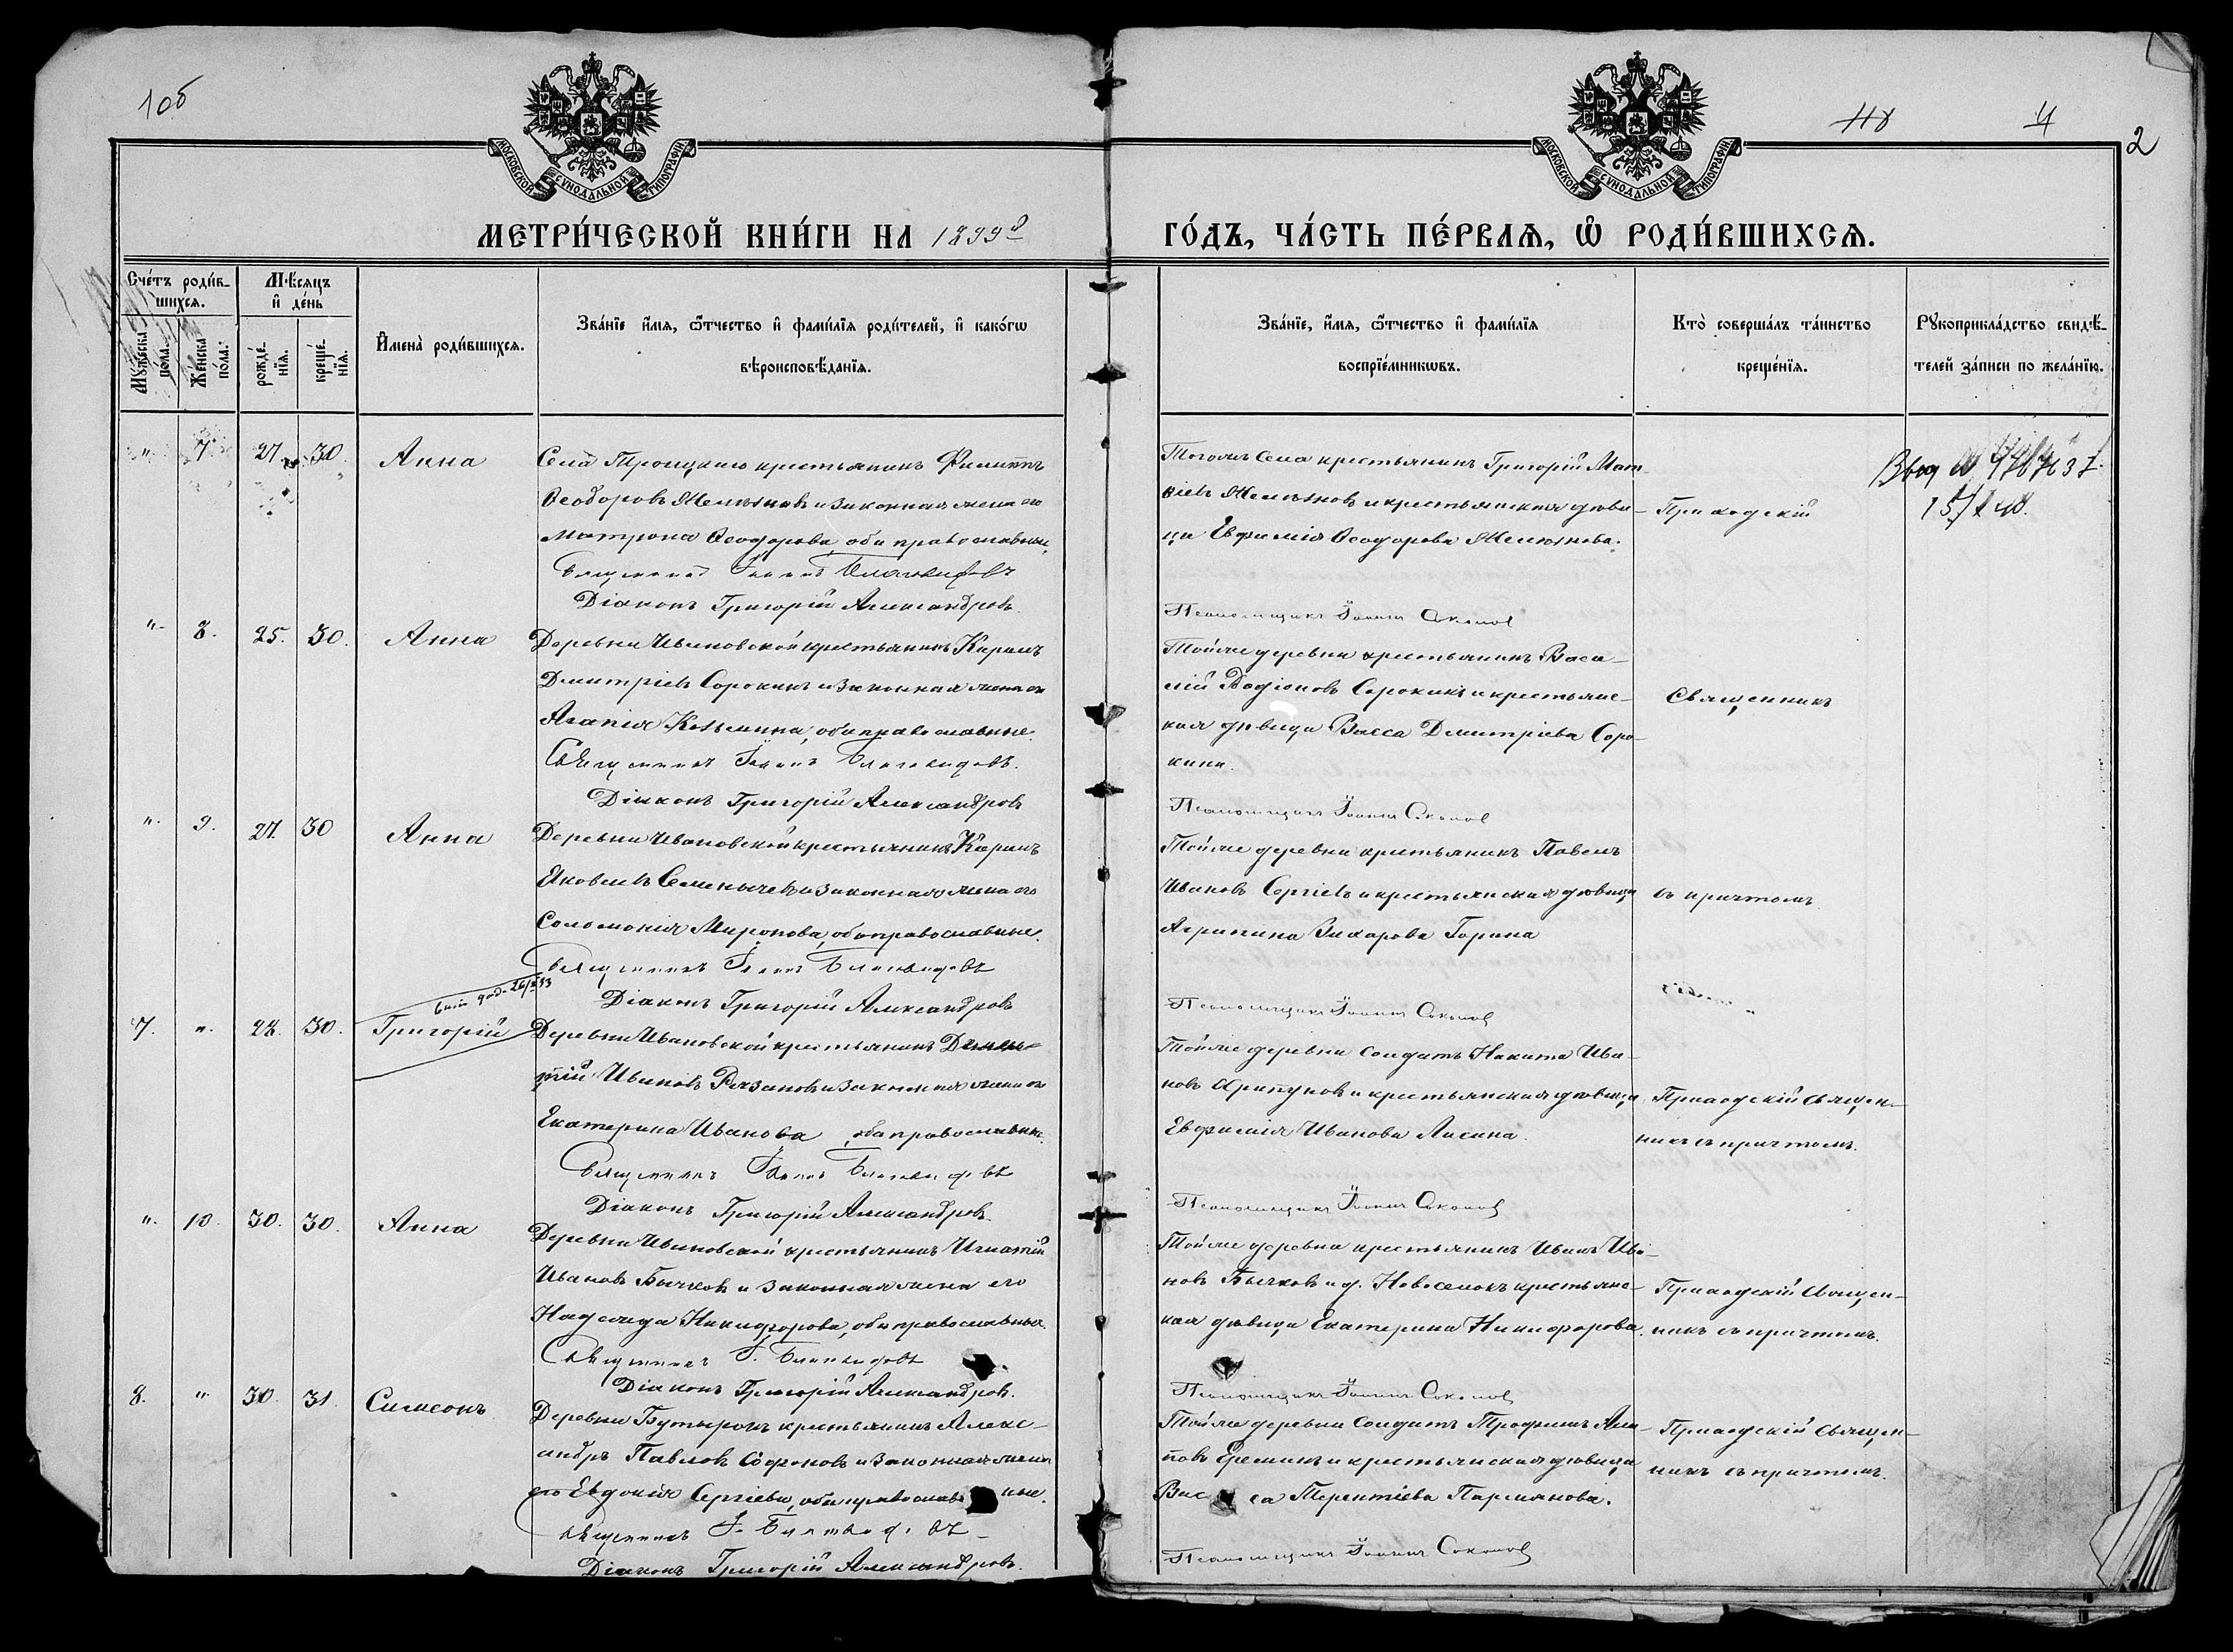 106
118
4
2
МОСКОВСКОЙ СѴНОДАЛЬНОЙ ТИПОГРАФІИ
МОСКОВСКОЙ СѴНОДАЛЬНОЙ ТИПОГРАФІИ
МЕТРИ́ЧЕСКОЙ КНИ́ГИ НА 1899й
ГО́ДЪ, ЧА́СТЬ ПЕ́РВАѦ, Ѡ҆ РОДИ́ВШИХСѦ.
Сче́тъ роди́в-
шихсѧ.
Мѣ́сѧцъ
и҆ де́нь
Мꙋ́жеска
по́ла.
Же́нска
по́ла.
рожде́-
нїѧ.
креще́-
нїѧ.
И҆мена̀ роди́вшихсѧ.
Зва́нїе и҆́мѧ, ѻ҆́тчество и҆ фами́лїѧ роди́телей, и҆ како́гѡ
вѣроисповѣ́данїѧ.
Зва́нїе, и҆́мѧ, ѻ҆́тчество и҆ фами́лїѧ
воспрїе́мникѡвъ.
Кто̀ соверша́лъ та́инство
креще́нїѧ.
Рꙋкоприкла́дство свидѣ́-
телей за́писи по жела́нїю.
" 7 27. 30 Анна
Села Троицкаго крестьянинъ Филиппъ
Ѳеодоровъ Желѣзновъ и законная жена его
Матрона Ѳеодорова, оба православные.
Священникъ Іоаннъ Благовидовъ
Діаконъ Григорій Александровъ.
Тогожъ села крестьянинъ Григорій Мат-
ѳіевъ Желѣзновъ и крестьянская дѣви-
ца Евфимія Ѳеодорова Желѣзнова.
Псаломщикъ Іоаннъ Соколов
Приходскій
" 8. 25. 30. Анна
Деревни Ивановской крестьянинъ Карпъ
Дмитріевъ Сорокинъ и законная жена его
Агапія Козьмина, оба православные.
Священникъ Іоаннъ Благовидовъ.
Діаконъ Григорій Александровъ
Тойже деревни крестьянинъ Васи-
лій Родіоновъ Сорокинъ и крестьянс-
кая дѣвица Васса Дмитріева Соро-
кина.
Псаломщикъ Іоаннъ Соколов
Священникъ
" 9. 27. 30 Анна
Деревни Ивановской крестьянинъ Карпъ
Яковлевъ Семенычевъ и законная жена его
Соломонія Миронова, оба православные.
Священникъ Іоаннъ Благовидовъ
Діаконъ Григорій Александровъ
Тойже деревни крестьянинъ Павелъ
Ивановъ Сергіевъ и крестьянская дѣвица
Агрипина Захарова Горина
Псаломщикъ Іоаннъ Соколов
съ причтомъ
7. " 28. 30. Григорій
Деревни Ивановской крестьянинъ Демен-
тій Ивановъ Рязановъ и законная жена его
Екатерина Иванова, оба православные.
Священникъ Іоаннъ Благовидовъ
Діаконъ Григорій Александровъ.
Тойже деревни солдатъ Никита Ива-
новъ и крестьянская дѣвица
Евфимія Иванова Лисина.
Псаломщикъ Іоаннъ Соколов
Приходскій священ-
никъ съ причтомъ.
" 10. 30. 30. Анна
Деревни Ивановской крестьянинъ Игнатій
Ивановъ Бычковъ и законная жена его
Надежда Никифорова, оба православные.
Священникъ І. Благовидовъ
Діаконъ Григорій Александровъ.
Тойже деревни крестьянинъ Иванъ Ива-
новъ Бычковъ и д. Новоселокъ крестьянс-
кая дѣвица Екатерина Никифорова.
Псаломщикъ Іоаннъ Соколов
Приходскій священ-
никъ съ причтомъ.
8. " 30. 31. Симеонъ
Деревни Бутырокъ крестьянинъ Алекс-
андръ Павловъ Софоновъ и законная жена
его Евдокія Сергіева, оба православные.
Священникъ І. Благовидовъ
Діаконъ Григорій Александровъ.
Тойже деревни солдатъ Трофимъ
Ереминъ и крестьянская дѣвица
Васса Терентіева
Псаломщикъ Іоаннъ Соколов
Приходскій священ-
никъ съ причтомъ.